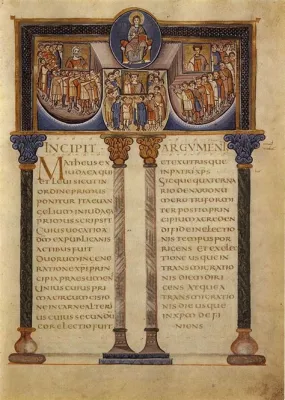 INCIPIT
Matheus ex
iudaea qui
et Levi sicut in
ordine primus
ponitur ita evan
gelium in iudaea
primus scripsit
cuius vocatio a
dm ex publicanis
actibus fuit
duorum in gene
ratione xpi prin
cipia praesumens
unius cuius pri
ma circumcisio
ne in carne alteri
us cuius secundu
cor electio fuit
ARGUMENT
et ex utrisque
in patrib xps
sicque quaterna
rio denario nu
mero triformi
ter posito prin
cipium a creden
di fide in electio
nis tempus por
rigens et ex elec
tione usque in
transmigratio
nis diem diri
gens atque a
transmigrationis
die usque
in xpm defi
niens